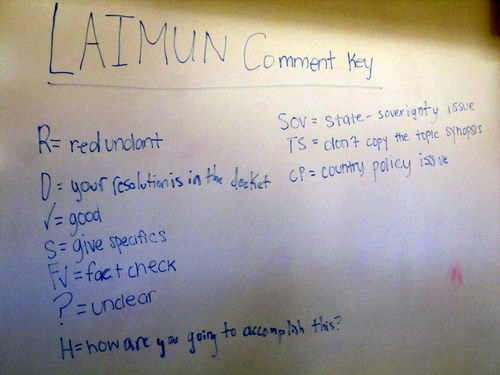 LAIMUN Comment Key
R= redundant
D= your resolution is in the docket
✓= good
S= give specifics
F✓= fact check
?= unclear
H= how are you going to accomplish this?
SOV= state-soverignty issue
TS= don't copy the topic synopsis
CP= country policy issue